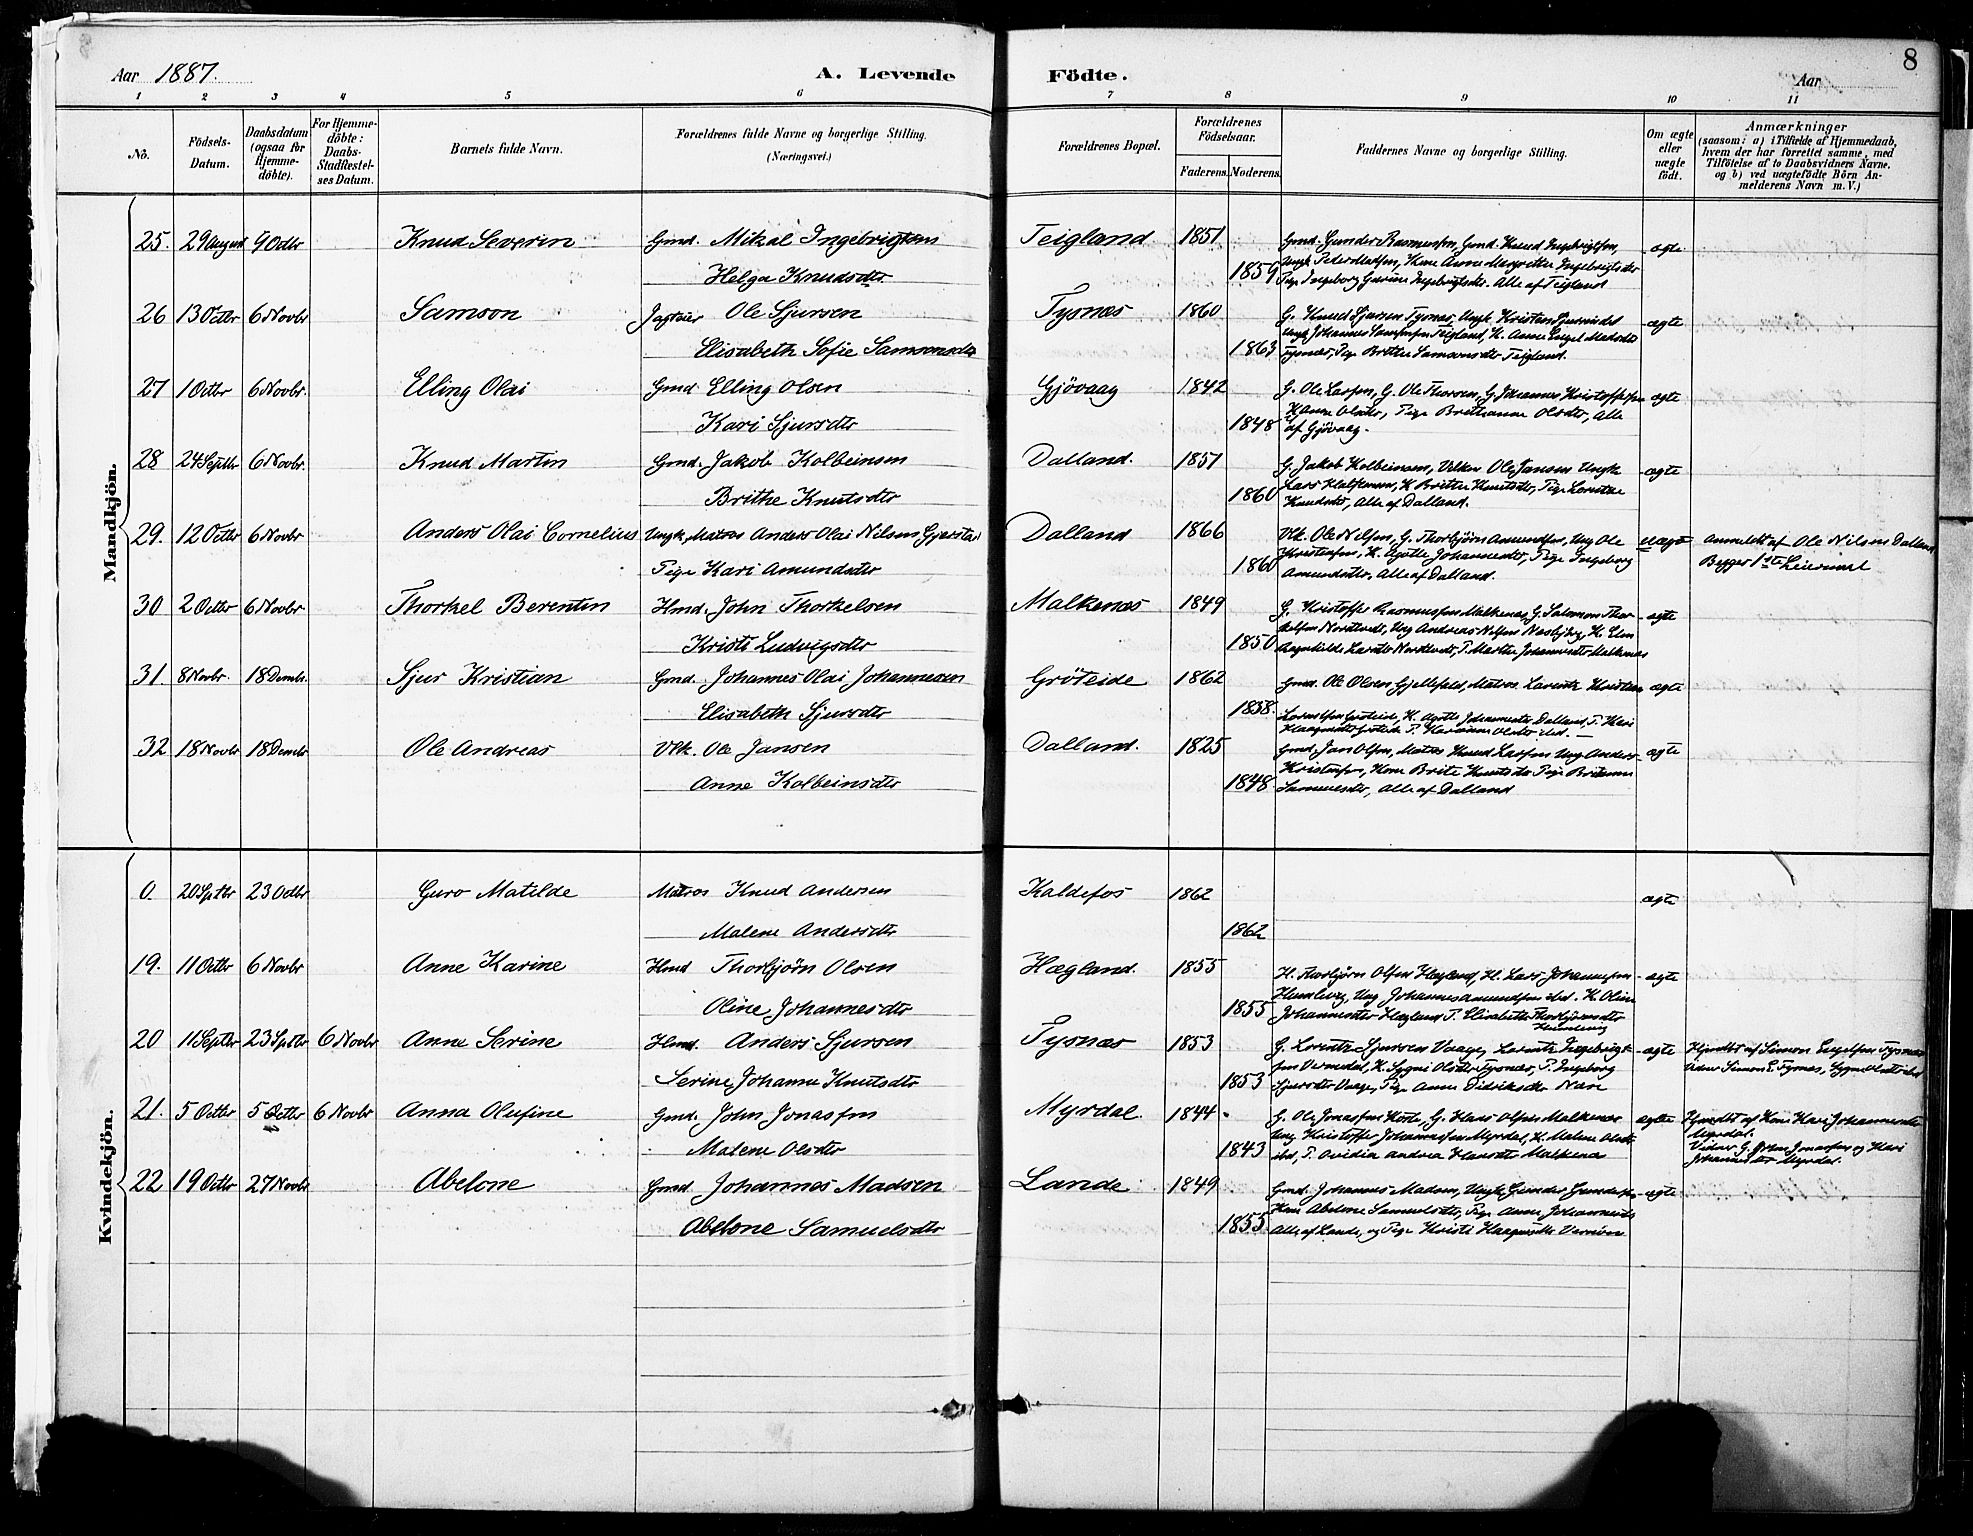 8
Aar 1887.
A. Levende Födte.
Aar
1 2 3 4 5 6 7 8 9 10 11
No.
Födsels-Datum.
Daabsdatum (ogsaa for Hjemme-döbte).
For Hjemme-döbte: Daabs-Stadfæstel-ses Datum.
Barnets fulde Navn.
Forældrenes fulde Navne og borgerlige Stilling. (Næringsvei.)
Forældrenes Bopæl.
Forældrenes Födselsaar.
Faderens. Moderens.
Faddernes Navne og borgerlige Stilling.
Om ægte eller uægte födt.
Anmærkninger
(saasom: a) i Tilfælde af Hjemmedaab, hvem der har forrettet samme, med Tilföielse af to Daabsvidners Navne. og b) ved uægtefödte Börn An-melderens Navn m. V.)
Mandkjön.
25. 29 August 9 Octbr Knud Severin Gmd. Mikal Ingebrigtsen Teigland 1851 Gmd. Gunder Rasmussen, Gmd. Knud Ingebrigtsen, ægte
Helga Knudsdtr 1859 Ungk Peder Madsen, Kone Anne Margrethe Ingebrigtsdtr
Pige Ingeborg Ingebrigtsdtr. Alle af Teigland
26 13 Octbr 6 Novbr Samson Ole Sjursen Tysnæs 1860 G. Knud Sjursen Tysnæs, Ungk. Kristen ægte
Elisabeth Sofie Samsonsdtr 1863 Ungk Johannes Samsonsen Teigland, K. Anne Engel Madsdtr
Tysnæs, Pige Brithe Samsonsdtr Teigland.
27 1 Octbr 6 Novbr. Elling Olai Gmd Elling Olsen Gjövaag 1842 G. Ole Larsen, G. Ole Thorsen, G. Johannes Kristoffersen ægte
Kari Sjursdtr 1848 K. Anne Olsdtr, Pige Brithanne Olsdtr, Alle
af Gjövaag.
28 24 Septbr 6 Novbr. Knud Martin Gmd. Jakob Kolbeinsen Dalland. 1851 G. Jakob Kolbeinsen, Vilkm Ole Jansen Ungk ægte
Brithe Knutsdtr 1860 Lars K. Brithe Knutsdtr, Pige
Knudsdtr, Alle af Dalland.
29. 12 Octbr 6 Novbr Anders Olai Cornelius Ungk, Matros Anders Olai Nilsen Gjerstad Dalland 1866 Vlk. Ole Nilsen, G. Thorbjörn Amundsen, Ung Ole uægte Anmeldt af Ole Nilsen Dalland
Pige Kari Amundsdtr 1860 Kristensen, K. Agathe Johannesdtr, Pige Ingeborg Begges 1ste Leiermaal
Amundsdtr, Alle af Dalland.
30 2 Octbr 6 Novbr Thorkel Berentin Hmd. John Thorkelsen Malkenæs 1849 G. Kristoffer Rasmussen Malkenæs, G. Salomon Thor- ægte
Kristi Ludvigsdtr 1850 kelsen Nordtvedt, Ung Andreas Nilsen
Larsdtr Nordtvedt, P. Marthe Johannesdtr Malkenæs
31. 8 Novbr. 18 Decmbr. Sjur Kristian Gmd. Johannes Olai Johannesen Gröteide 1862 Gmd. Ole Olsen Gjellefald, Matros Lorentz Kristian ægte
Elisabeth Sjursdtr 1858. K. Agathe Johannesdtr Dalland P. Kari
P. Karianne Olsdtr ibd.
32 18 Novbr 18 Decmbr Ole Andreas Vlk. Ole Jansen Dalland. 1825 Gmd. Jan Olsen, Matros Knud Larsen Ung Anders ægte
Anne Kolbeinsdtr 1848 Kristensen, Kone Brite Knutsdtr Pige
Samuelsdtr, Alle af Dalland
Kvindekjön.
0. 20 Sptbr 23 Octbr Guro Matilde Matros Knud Andersen Kaldefos 1862 ægte
Malene Andersdtr 1862
19. 11 Octbr 6 Novbr Anne Karine Hmd Thorbjörn Olsen Hægland. 1855 H. Thorbjörn Olsen Hægland, H. Lars Johannesen ægte
Oline Johannesdtr 1855 Ung Johannes Amundsen ibd. K. Oline
Johannesdtr Hægland P. Elisabeth Thorbjörnsdtr
20 11 Septbr 23 Sptbr 6 Novbr Anne Serine Hmd. Anders Sjursen Tysnæs 1853 G. Lorentz Sjursen Vaage, Lorentz Ingebrigt- ægte Hjmdbt af Simon Engelsen Tysnæs
Serine Johanne Knutsdtr 1853 sen K. Sygni Olsdtr Tysnæs, P. Ingeborg Simon E. Tysnæs, Sygni Olsdtr ibd
Sjursdtr Vaage, Pige Anne Didriksdtr Nan
21. 5 Octbr 5 Octbr 6 Novbr Anna Olufine Gmd. John Jonassen Myrdal. 1844 G. Ole Jonassen G. Hans Olsen Malkenæs ægte Hjmdbt af Kone Kari Johannesdtr
Malene Olsdtr 1843 Ung Kristoffer Johannessen Myrdal, K. Malene Olsdtr Myrdal.
ibd, P. Ovidia Andrea Hansdtr Malkenæs Vidner G. John Jonassen og Kari
Johannesdtr Myrdal.
22 19 Octbr 27 Novbr Abelone Gmd. Johannes Madsen Lande 1849 Gmd. Johannes Madsen, Ungk. Gunder ægte
Abelone Samuelsdtr 1855 Kone Abelone Samuelsdtr, Pige Anne Johannesdtr
Alle af Lande, og Pige Kristi